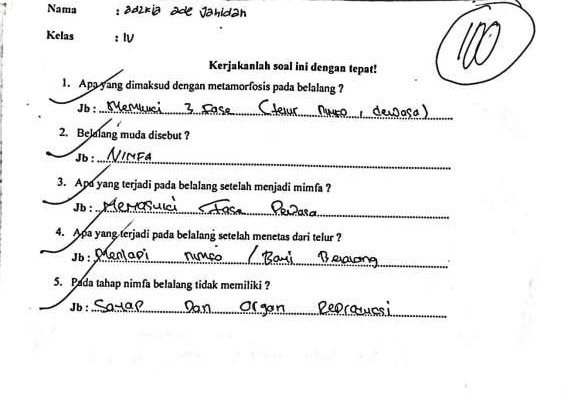 Nama : adzkia ade Jahidah
Kelas : IV
100
Kerjakanlah soal ini dengan tepat!
1. Apa yang dimaksud dengan metamorfosis pada belalang ?
Jb : Memiliki 3 Fase (telur nimfo, dewasa)
2. Belalang muda disebut ?
Jb : NIMFA
3. Apa yang terjadi pada belalang setelah menjadi mimfa ?
Jb : Memasuki Fase Dewasa
4. Apa yang terjadi pada belalang setelah menetas dari telur ?
Jb : Menjadi nimfo / Bayi Belalang
5. Pada tahap nimfa belalang tidak memiliki ?
Jb : Sayap Dan organ Reproduksi